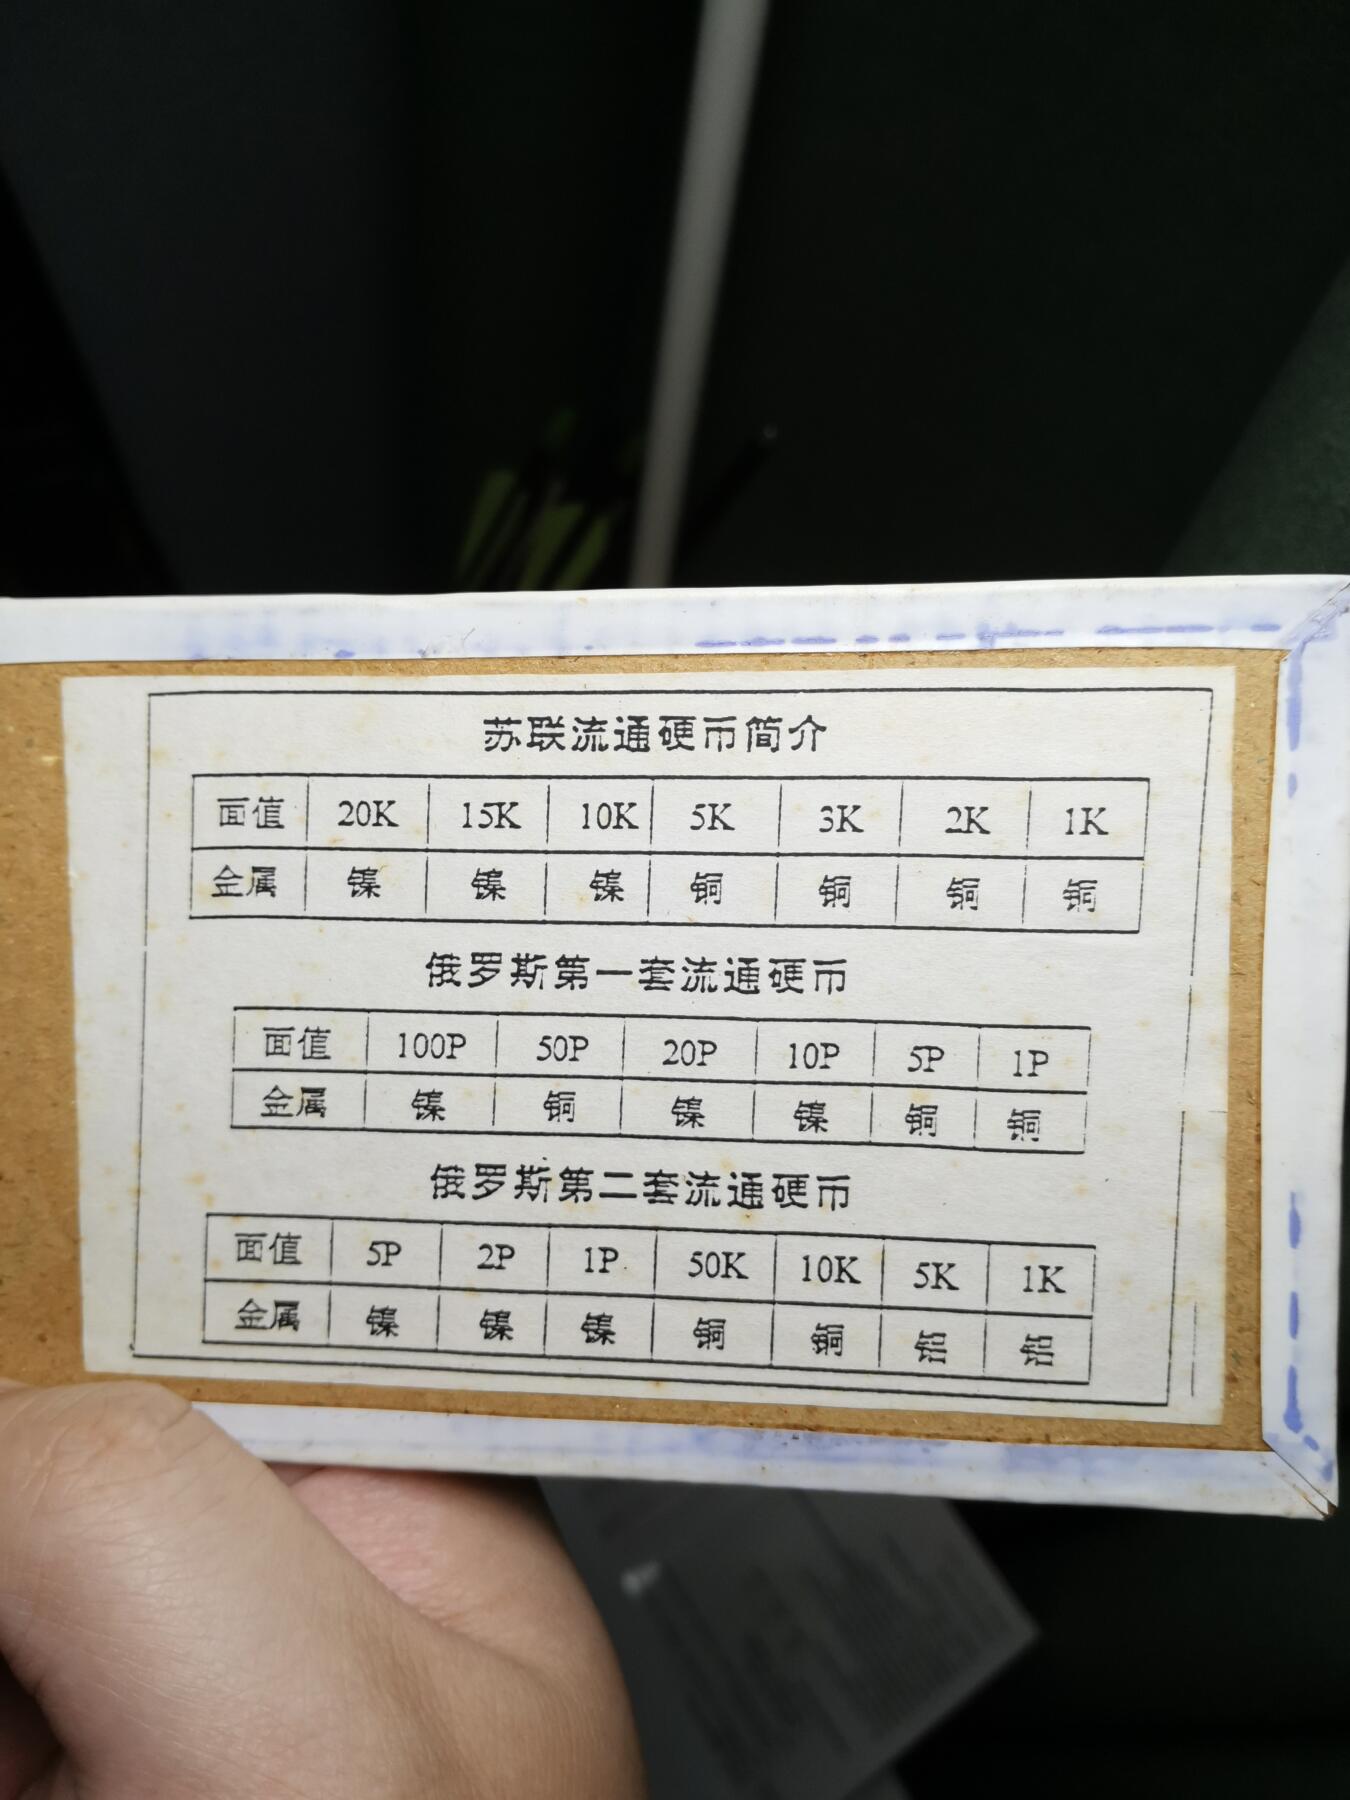 苏联流通硬币简介
面值 20K 15K 10K 5K 3K 2K 1K
金属 镍 镍 镍 铜 铜 铜 铜
俄罗斯第一套流通硬币
面值 100P 50P 20P 10P 5P 1P
金属 镍 铜 镍 镍 铜 铜
俄罗斯第二套流通硬币
面值 5P 2P 1P 50K 10K 5K 1K
金属 镍 镍 镍 铜 铜 铝 铝